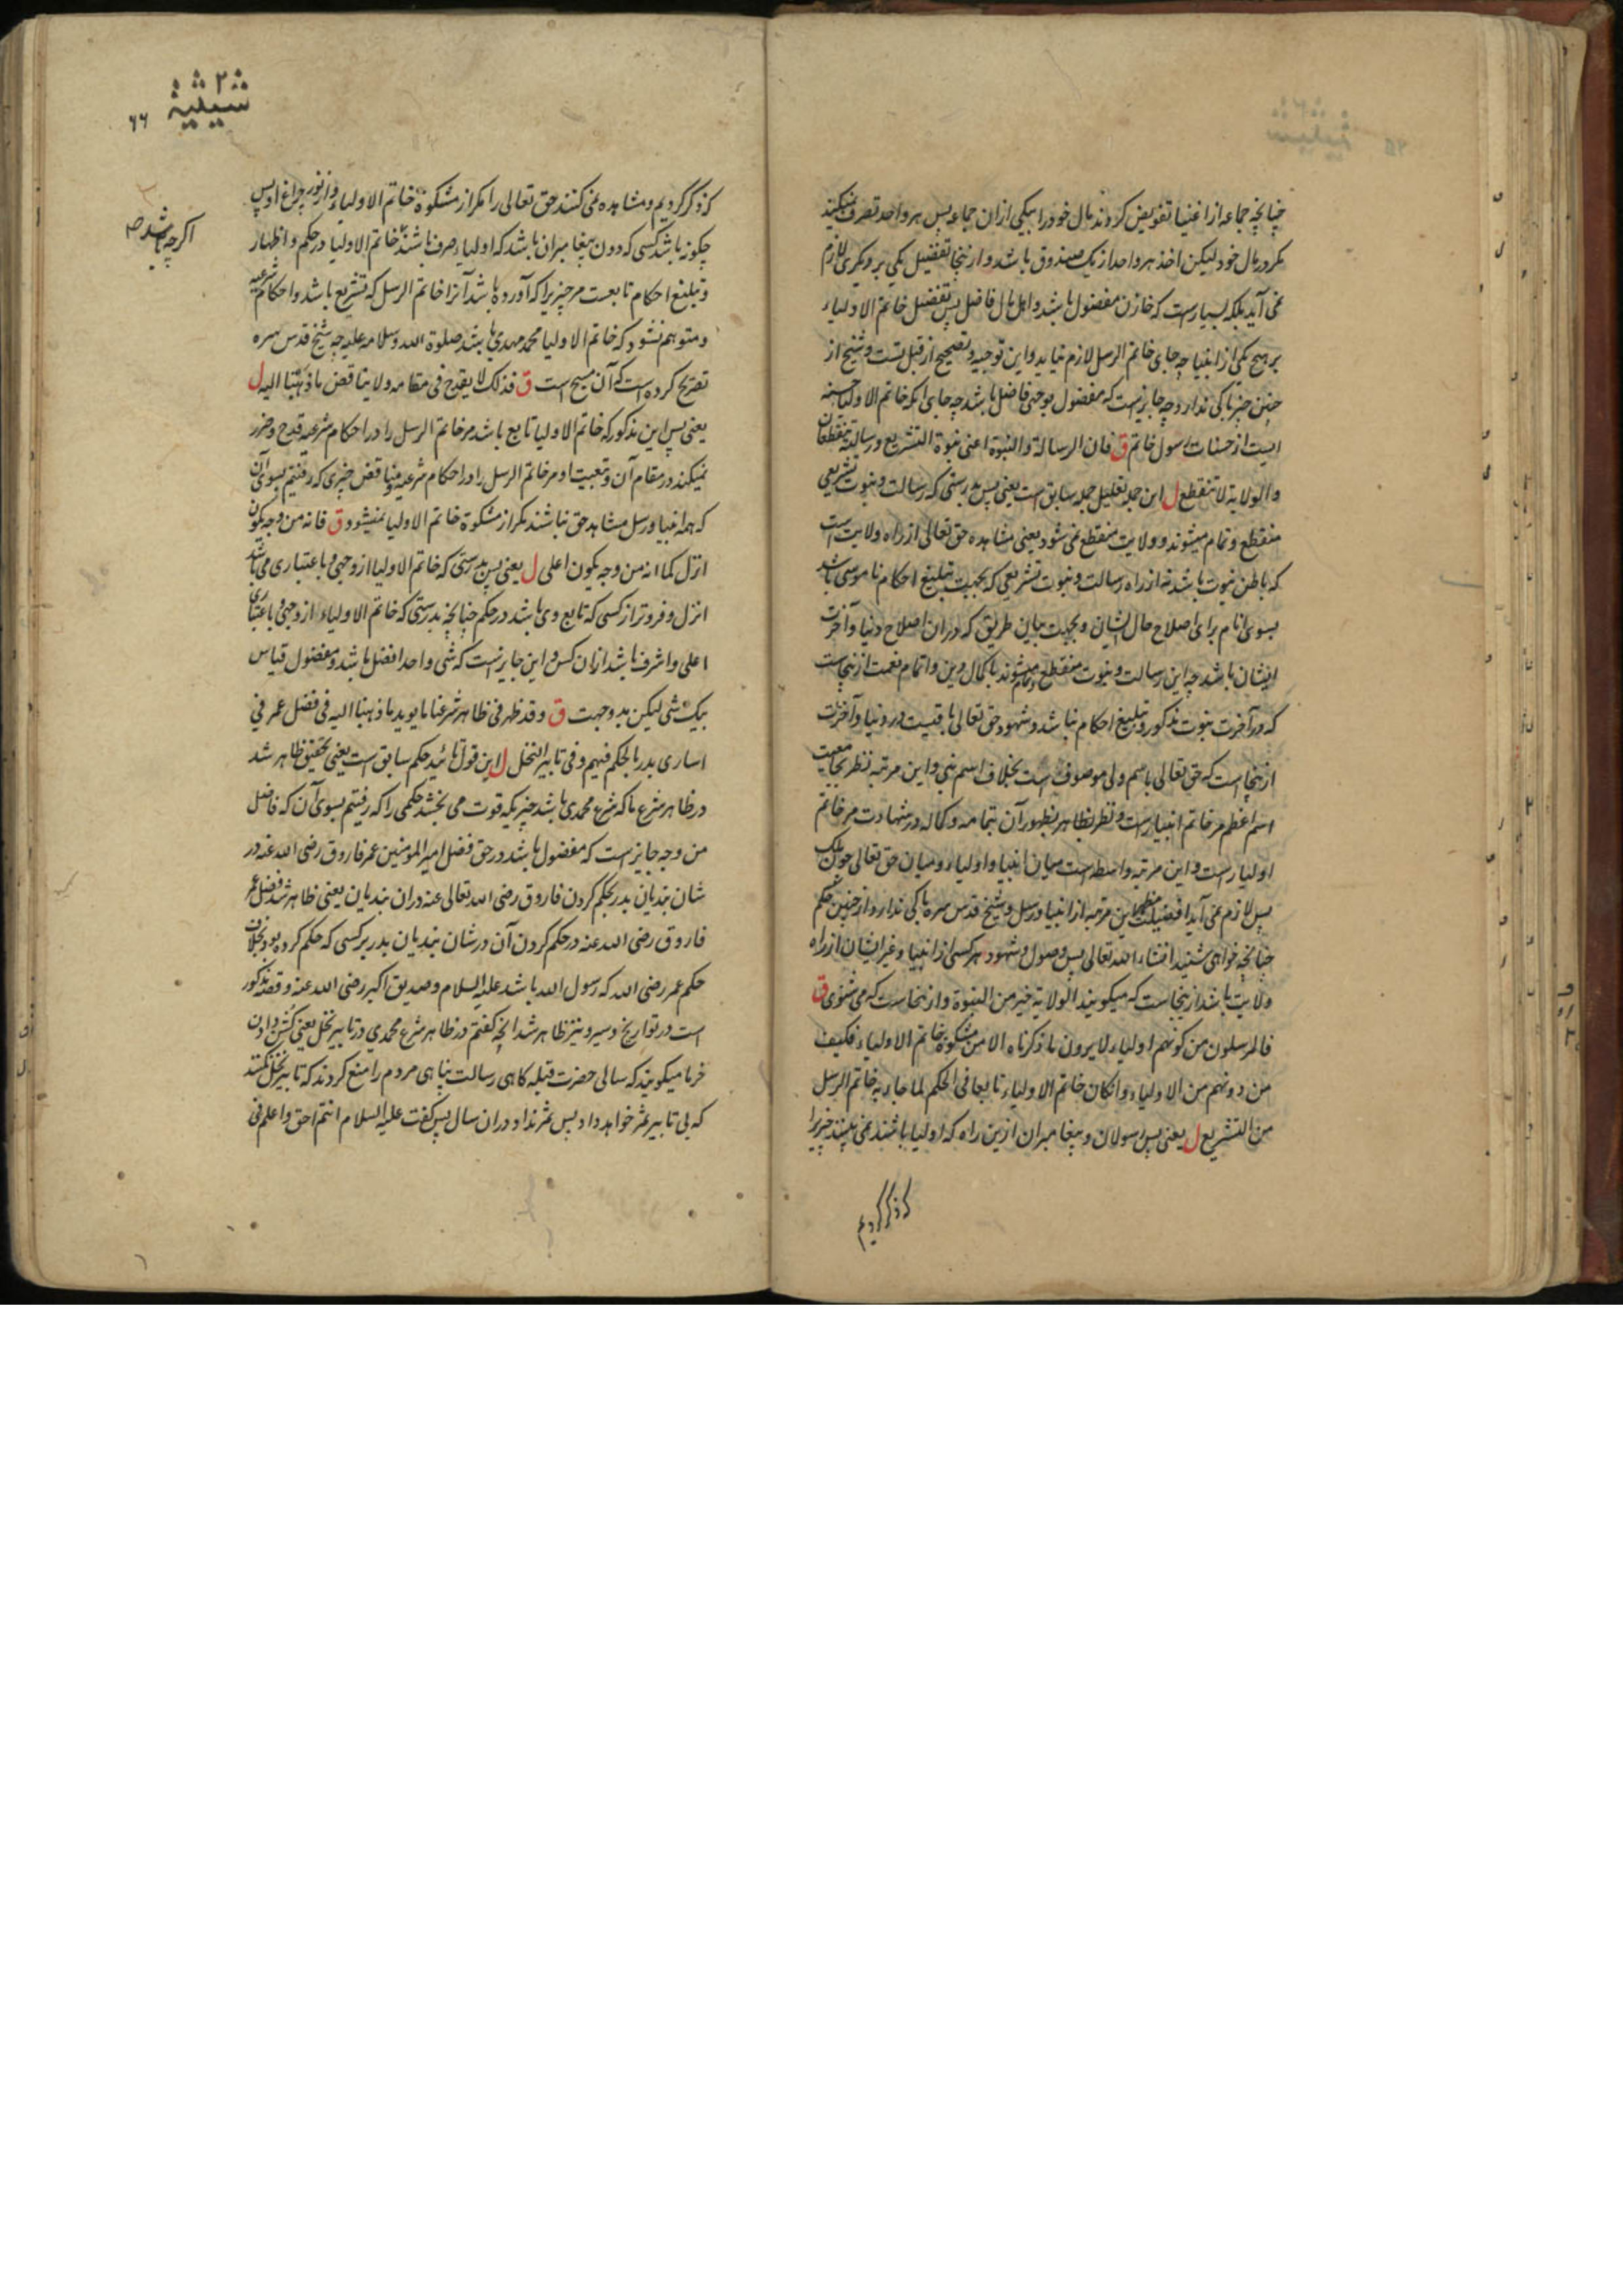 چنانچه جماعه از اغنیا تفویض کردند مال خود را بیکی ازان جماعه پس هر واحد تصرف نمیکند
مکر در مال خود لیکن اخذ هر واحد از یک صندوق باشد و ازینجا تفضیل یکی بر دیکری لازم
نمی آید بلکه بسیارست که خازن مفضول باشد و اهل مال فاضل پس تفضیل خاتم الاولیاء
بر هیچ یکی از انبیا چه جای خاتم الرسل لازم نیاید و این توجیه و تصحیح از قبل تست و شیخ از
چنین چیز باکی ندارد و چه جایزست که مفضول بوجهی فاضل باشد چه جای انکه خاتم الاولیا حسنه
ایست از حسنات رسول خاتم ق فان الرسالة والنبوة اعنی نبوة التشریع ورسالته تنقطعان
والولایة لا تنقطع ل این جمله تعلیل جمله سابق است یعنی پس بدرستی که رسالت و نبوت تشریعی
منقطع و تمام میشوند و ولایت منقطع نمی شود یعنی مشاهده حق تعالی از راه ولایت است
که باطن نبوت باشد نه از راه رسالت و نبوت تشریعی که بجهت تبلیغ احکام ناموسی باشد
بسوی انام برای اصلاح حال ایشان و بجهت بیان طریق که دران اصلاح دنیا و آخرت
ایشان باشد چه این رسالت و نبوت منقطع و تمام میشوند باکمال دین و اتمام نعمت ازینجاست
که در آخرت نبوت مذکور و تبلیغ احکام نباشد و شهود حق تعالی باقیست در دنیا و آخرت
ازینجا است که حق تعالی باسم ولی موصوف است بخلاف اسم نبی و این مرتبه نظر بجامعیت
اسم اعظم مر خاتم انبیا راست و نظر بظاهر بظهور آن بتمامه و کماله در شهادت مر خاتم
اولیا راست و این مرتبه واسطه است میان انبیا و اولیاء و میان حق تعالی چون ملک
پس لازم نمی آید افضلیت مظهر این مرتبه از انبیا و رسل و شیخ قدس سره باکی ندارد از چنین حکم
چنانچه خواهی شنید انشاء الله تعالی پس وصول و شهود هر کسی از انبیا و غیر ایشان از راه
ولایت باشد ازینجاست که میکویند الولایة خیر من النبوة و ازینجاست که می شنوی ق
فالمرسلون من کونهم اولیاء لا یرون ما ذکرناه الا من مشکوة خاتم الاولیاء فکیف
من دونهم من الاولیاء وانکان خاتم الاولیاء تابعا فی الحکم لما جاء به خاتم الرسل
من التشریع ل یعنی پس رسولان و پیغامبران ازین راه که اولیا باشند نمی بینند چیزیرا
که ذکر کردیم
۶۶
که ذکر کردیم و مشاهده نمی کنند حق تعالی را مکر از مشکوة خاتم الاولیاء و از نور چراغ او پس
چکونه باشد کسی که دون پیغامبران باشد که اولیاء صرف باشند خاتم الاولیاء در حکم و اظهار
اکرچه باشد صح
و تبلیغ احکام تابعست مر چیزیرا که آورده باشد آنرا خاتم الرسل که تشریع باشد و احکام شرعیه
و متوهم نشود که خاتم الاولیا محمد مهدی باشد صلوة الله وسلامه علیه چه شیخ قدس سره
تصریح کرده است که آن مسیح است ق فذلک لا یقدح فی مقامه ولا یناقض ما ذهبنا الیه ل
یعنی پس این مذکور که خاتم الاولیا تابع باشد مر خاتم الرسل را در احکام شرعیه قدح و ضرر
نمیکند در مقام آن و تبعیت او مر خاتم الرسل را در احکام شرعیه مناقض چیزی که رفتیم بسوی آن
که همه انبیا و رسل مشاهد حق نباشند مکر از مشکوة خاتم الاولیا نمیشود ق فانه من وجه یکون
انزل کما انه من وجه یکون اعلی ل یعنی پس بدرستی که خاتم الاولیا از وجهی و باعتباری می باشد
انزل و فروتر از کسی که تابع وی باشد در حکم چنانچه بدرستی که خاتم الاولیاء از وجهی و باعتباری
اعلی و اشرف باشد ازان کس و این جایز نیست که شی واحد افضل باشد و مفضول قیاس
بیک شی لیکن بدو جهت ق وقد ظهر فی ظاهر شرعنا ما یوید ما ذهبنا الیه فی فضل عمر فی
اساری بدر بالحکم فیهم وفی تابیر النخل ل این قول تائید حکم سابق است یعنی بتحقیق ظاهر شد
در ظاهر شرع ما که شرع محمدی باشد چیزیکه قوت می بخشد حکمی را که رفتیم بسوی آن که فاضل
من وجه جایز است که مفضول باشد در حق فضل امیر المومنین عمر فاروق رضی الله عنه در
شان بندیان بدر بحکم کردن فاروق رضی الله تعالی عنه دران بندیان یعنی ظاهر شد فضل عمر
فاروق رضی الله عنه در حکم کردن آن در شان بندیان بدر بر کسی که حکم کرده بود بخلاف
حکم عمر رضی الله که رسول الله باشد علیه السلام و صدیق اکبر رضی الله عنه و قصه مذکور
است در تواریخ و سیر و نیز ظاهر شد انچه کفتم در ظاهر شرع محمدی در تابیر نخل یعنی کشن دادن
خرما میکویند که سالی حضرت قبله کاهی رسالت پناهی مردم را منع کردند که تابیر نخل نکنند
که بی تابیر ثمر خواهد داد پس ثمر نداد دران سال پس کفت علیه السلام انتم احق واعلم فی